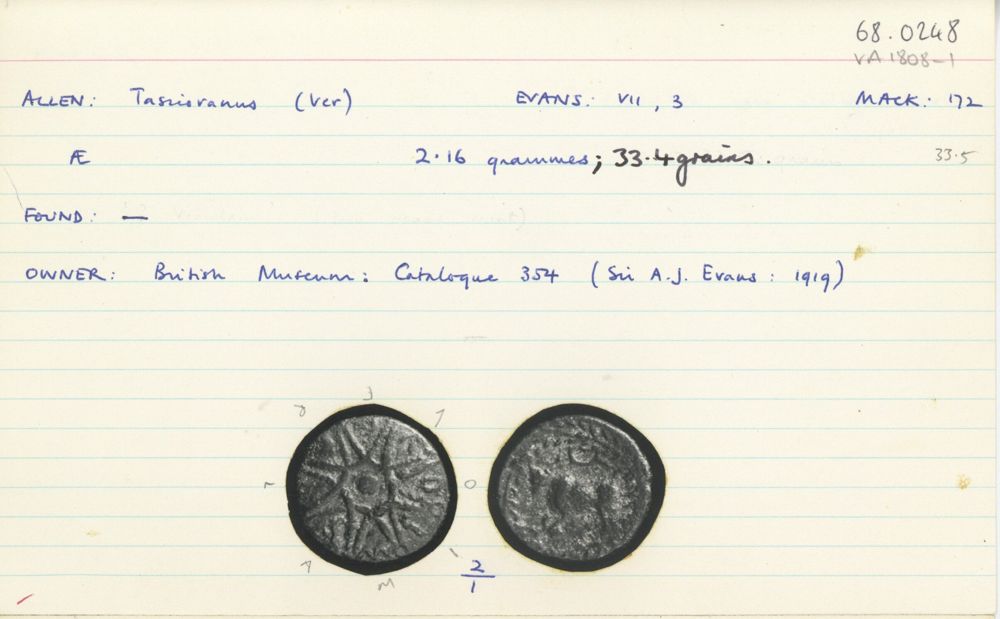 68.0248
VA1808-1
ALLEN: Tasciovanus (Ver) EVANS: VII, 3 MACK: 172
Æ 2.16 grammes; 33.4 grains. 33.5
FOUND: —
OWNER: British Museum: Catalogue 354 (Sir A.J. Evans: 1919)
2/1